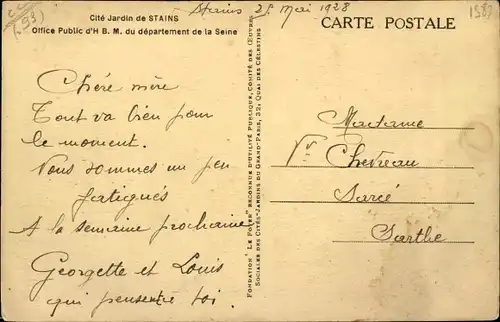 Cité Jardin de STAINS
Office Public d'H B. M. du département de la Seine
Stains 25 Mai 1928
CARTE POSTALE
(93)
Chére mère
Tout va bien pour
le moment.
Nous sommes un peu
fatigués
A la semaine prochaine
Georgette et Louis
qui pensent à toi.
FONDATION "LE FOYER" RECONNUE D'UTILITÉ PUBLIQUE, COMITÉ DES ŒUVRES
SOCIALES DES CITÉS-JARDINS DU GRAND-PARIS, 32, QUAI DES CÉLESTINS
Madame
Vve Chevreau
Sarcé
Sarthe